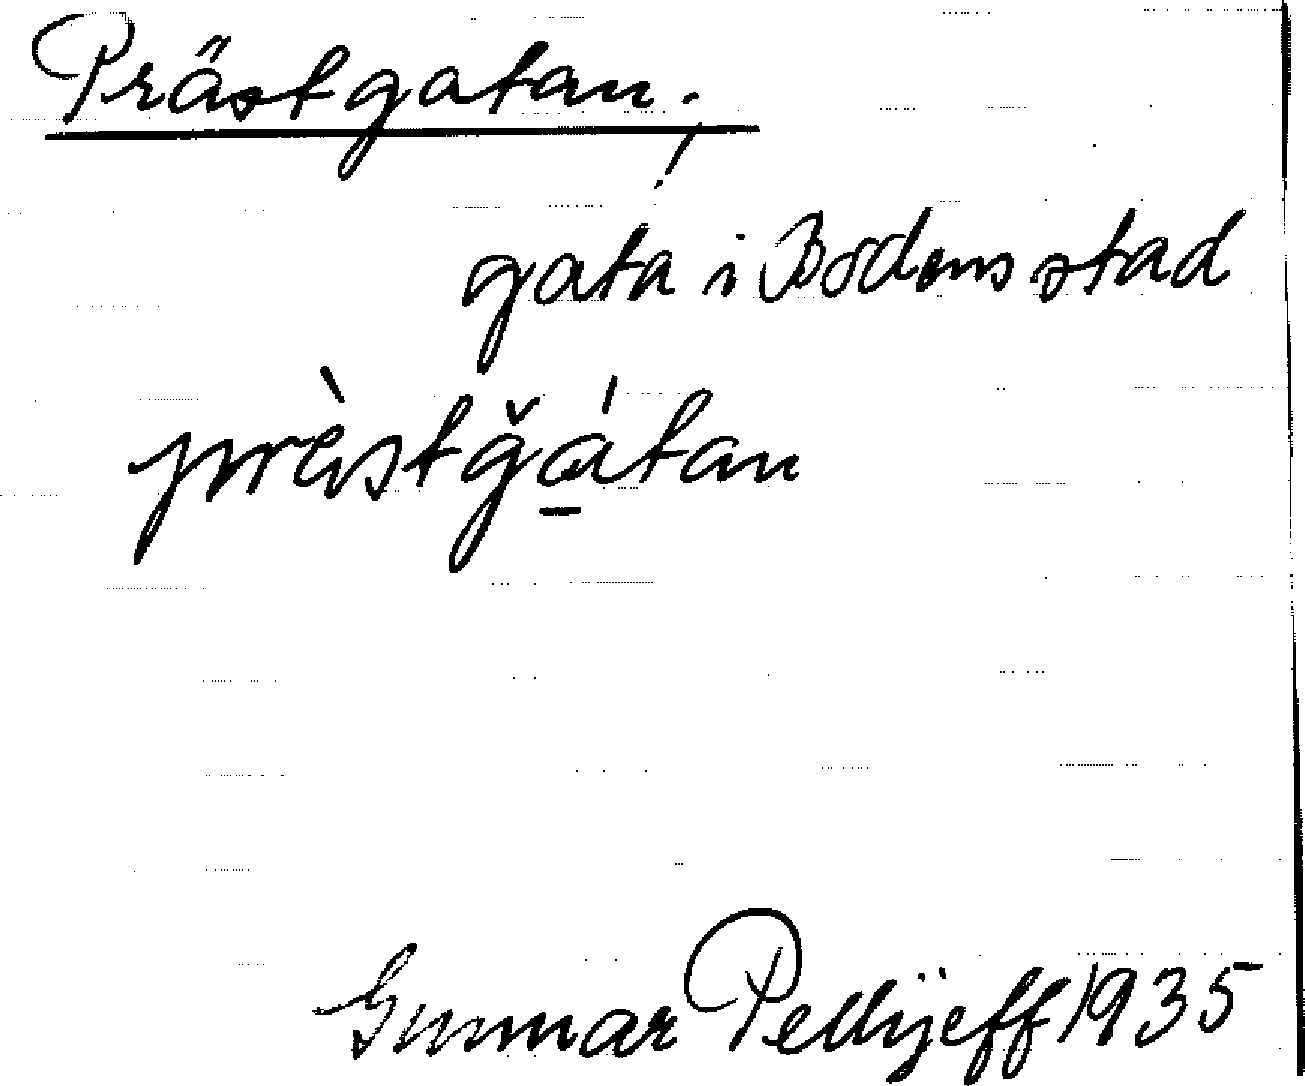 Prästgatan.!
gata i Bodens stad
prèstğátan
Gunnar Pellijeff 1935